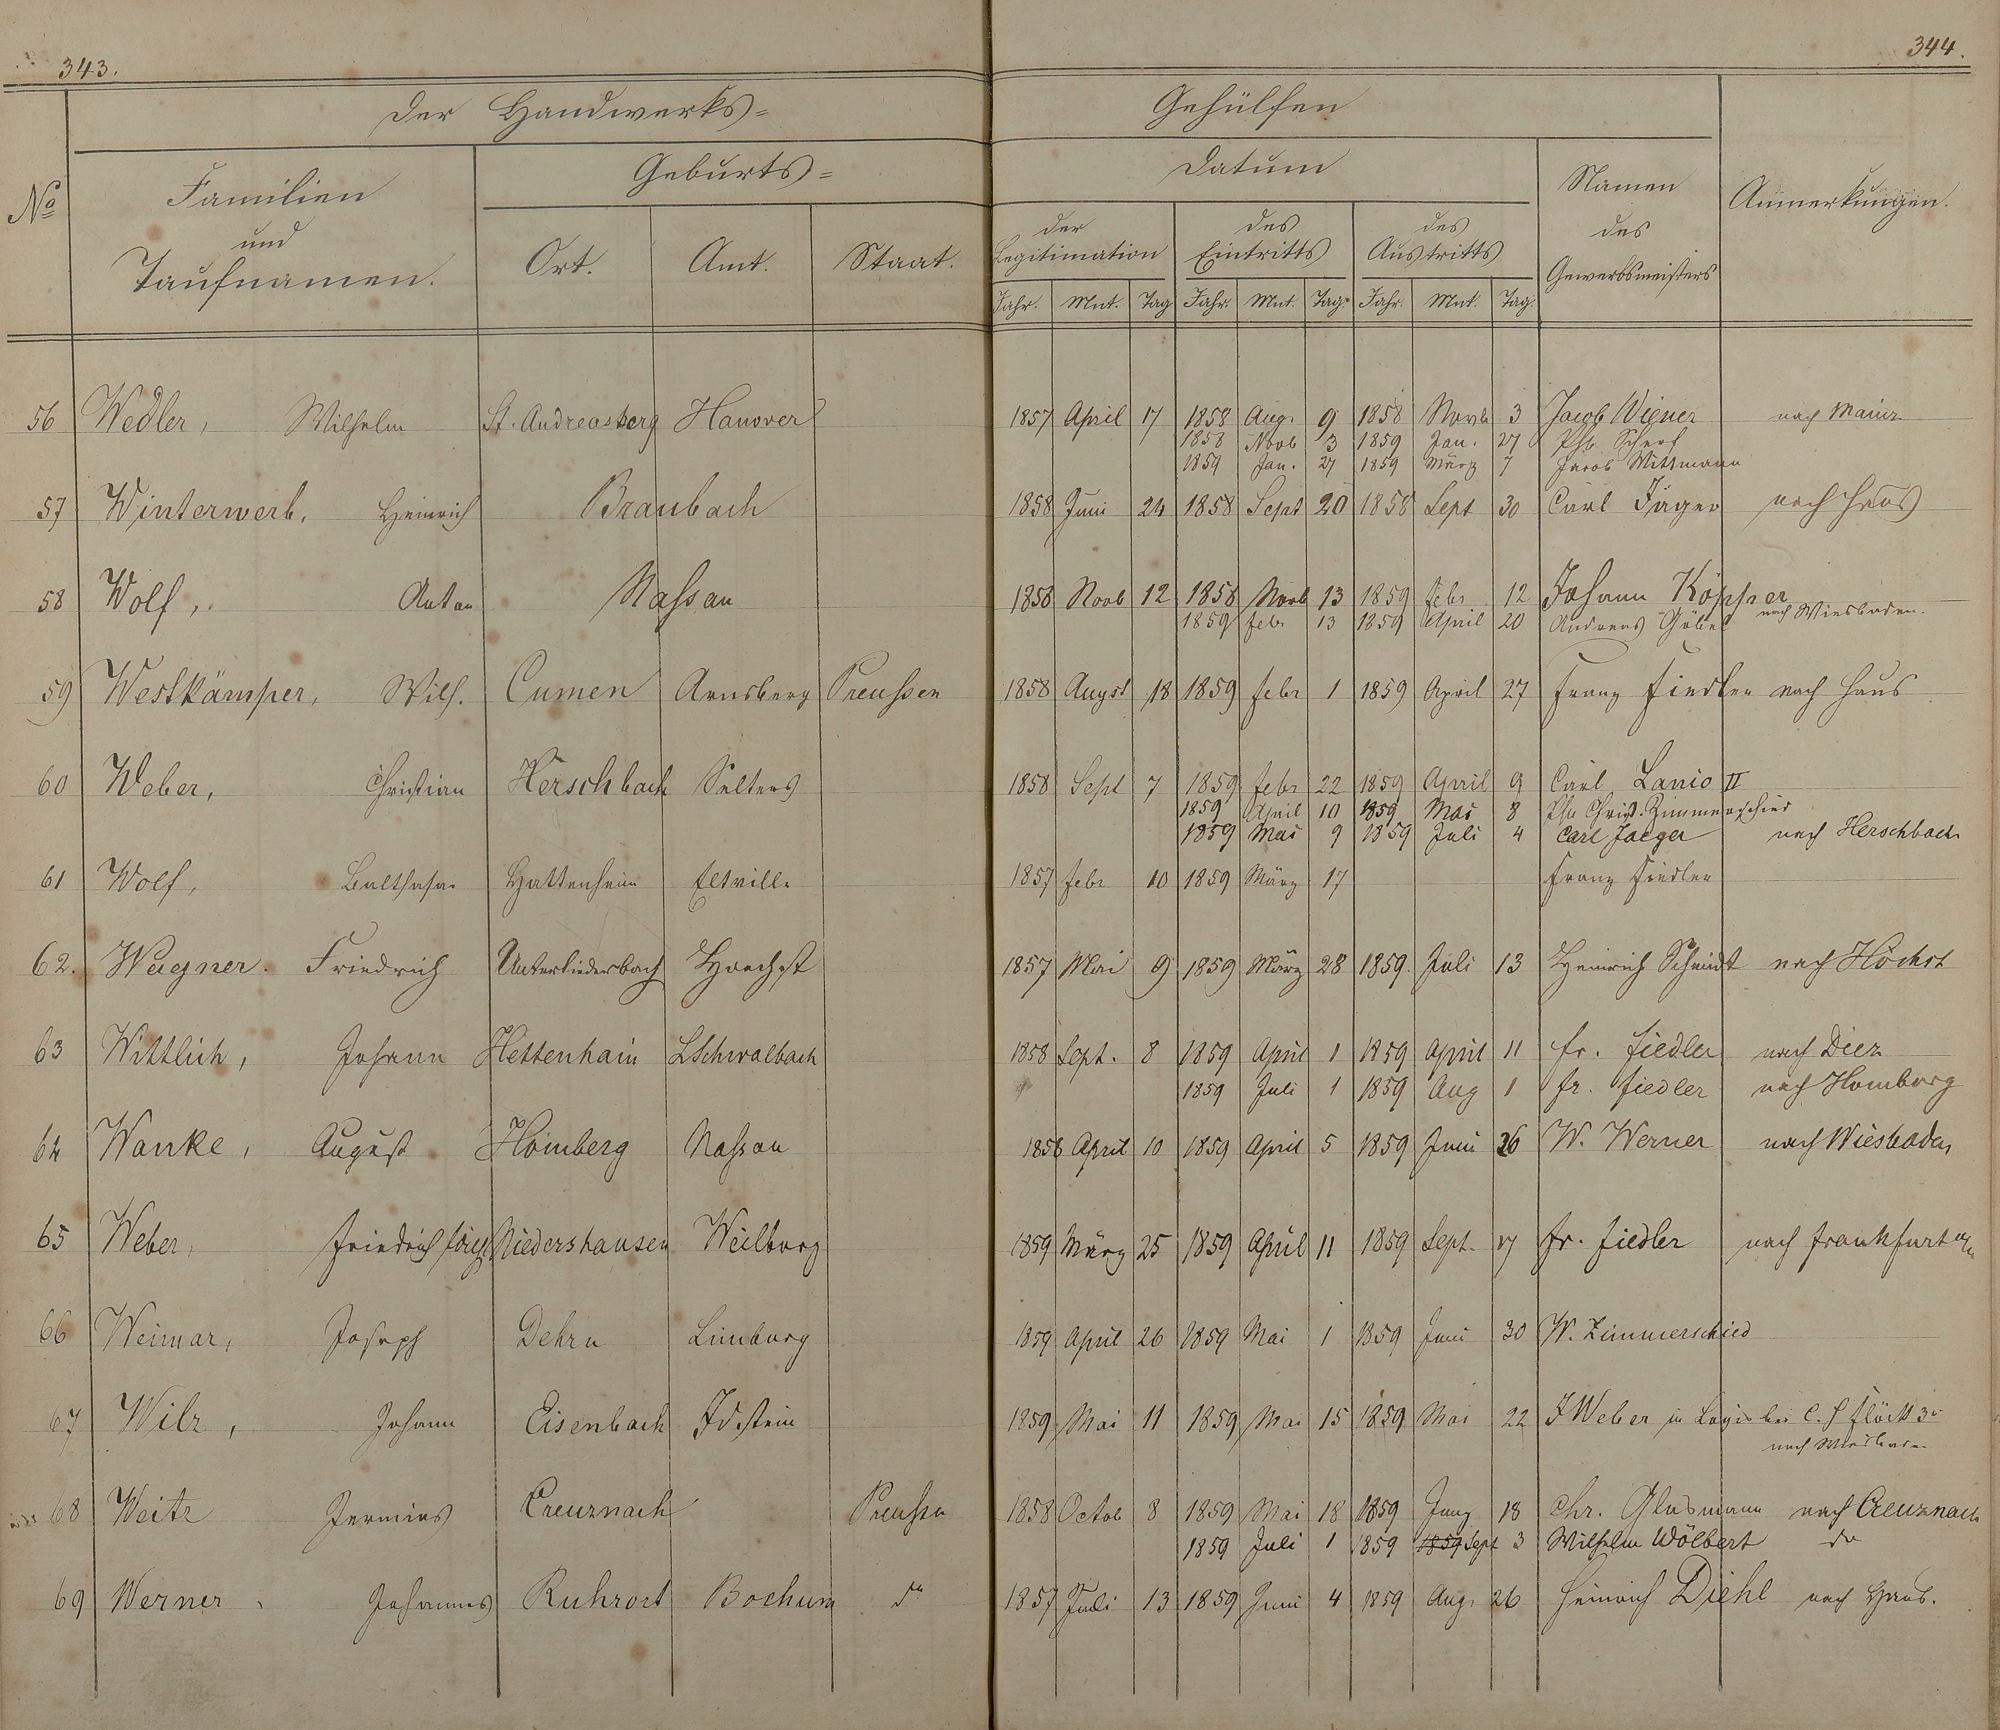 343.
344.
Der Handwerks= Gehülfen
No
Familien und Taufnamen.
Geburts=
Ort. Amt. Staat.
Datum
der Legitimation des Eintritts des Austritts
Jahr. Mnt. Tag Jahr. Mnt. Tag. Jahr. Mnt. Tag.
Namen des Gewerbsmeisters
Anmerkungen.
56 Wedler, Wilhelm St. Andreasberg Hanover 1857 April 17 1858 Aug. 9 1858 Novb 3 Jacob Wiener nach Mainz
1858 Novb 3 1859 Jan. 27 Ph. Scherf
1859 Jan. 27 1859 März 7 Jacob Wittmann
57 Winterwerb, Heinrich Braubach 1858 Juni 24 1858 Sept 20 1858 Sept 30 Carl Jäger nach Haus
58 Wolf, Anton Nassau 1858 Novb 12 1858 Novb 13 1859 Febr 12 Johann Köpper
1859 Febr 13 1859 April 20 Andreas Göbel nach Wiesbaden.
59 Westkämper, Wilh. Cumen Arnsberg Preussen 1858 Augst 18 1859 Febr 1 1859 April 27 Franz Fiedler nach Haus
60 Weber, Christian Herschbach Selters 1858 Sept 7 1859 Febr 22 1859 April 9 Carl Lanio II
1859 April 10 1859 Mai 8 Ph. Christ. Zimmerschied
1859 Mai 9 1859 Juli 4 Carl Jaeger nach Herschbach
61 Wolf, Balthasar Hattenheim Eltville 1857 Febr 10 1859 März 17 Franz Fiedler
62. Wagner. Friedrich Unterliederbach Hoechst 1857 Mai 9 1859 März 28 1859. Juli 13 Heinrich Schmidt nach Höchst
63 Wittlich, Johann Hettenhain LSchwalbach 1858 Sept. 8 1859 April 1 1859 April 11 Fr. Fiedler nach Diez
1859 Juli 1 1859 Aug 1 Fr. Fiedler nach Homburg
64 Wanke, August Homberg Nassau 1858 April 10 1859 April 5 1859 Juni 26 W. Werner nach Wiesbaden
65 Weber, Friedrich Niedershausen Weilburg 1859 März 25 1859 April 11 1859 Sept. 17 Fr. Fiedler nach Frankfurt a/m
66 Weimar, Joseph Dehrn Limburg 1859 April 26 1859 Mai 1 1859 Juni 30 W. Zimmerschied
67 Wilz, Johann Eisenbach Idstein 1859 Mai 11 1859 Mai 15 1859 Mai 22 J Weber in Logis bei C. H Flöck
nach Wiesbaden
68 Weitz Jermias Creuznach Preussen 1858 Octob 8 1859 Mai 18 1859 Juny 18 Chr. Glasmann nach Creuznach
1859 Juli 1 1859 1859 Sept 3 Wilhelm Wölbert do
69 Werner Johannes Ruhrort Bochum do 1857 Juli 13 1859 Juni 4 1859 Aug. 26 Heinrich Diehl nach Haus.